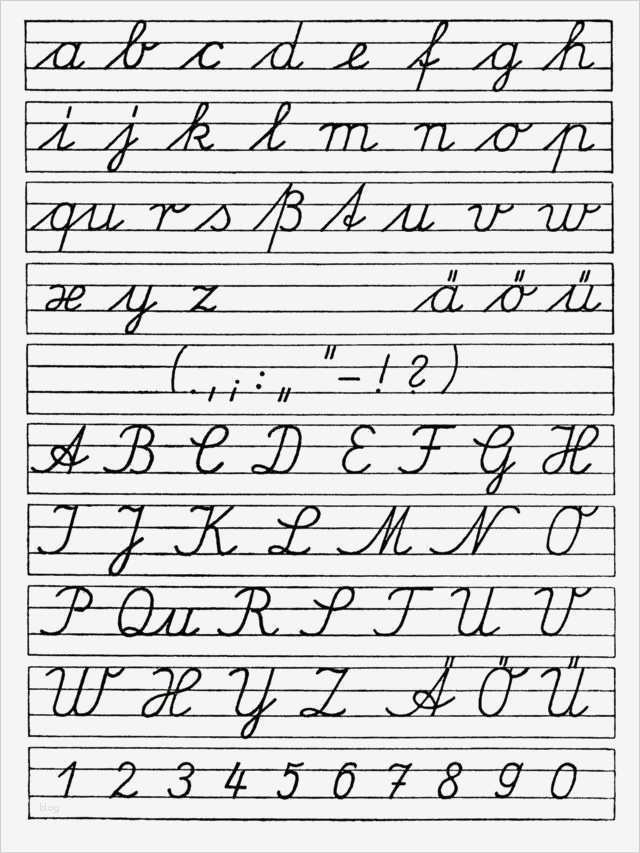 a b c d e f g h
i j k l m n o p
qu r s ß t u v w
x y z ä ö ü
( . , ; : „ " – ! ? )
A B C D E F G H
I J K L M N O
P Qu R S T U V
W X Y Z Ä Ö Ü
1 2 3 4 5 6 7 8 9 0
blog